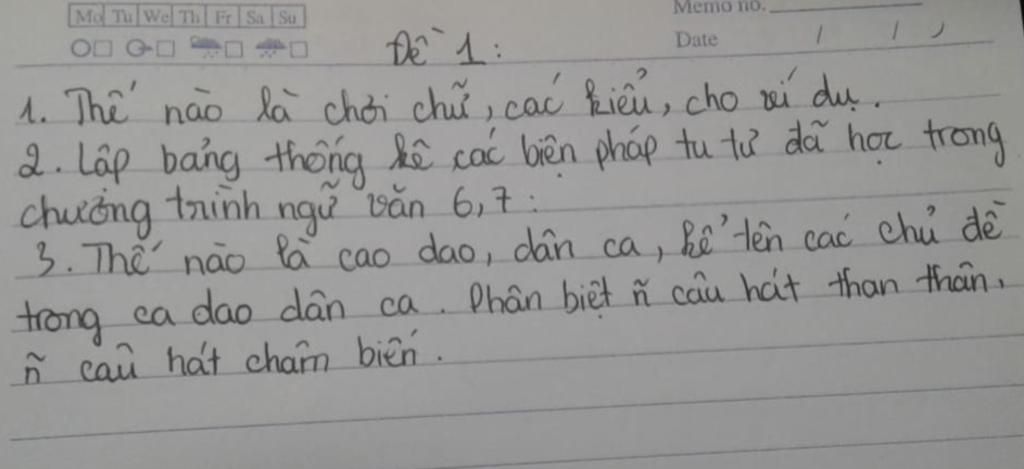 Mo Tu We Th Fr Sa Su
Memo no.
Date / / /
Đề 1:
1. Thế nào là chơi chữ, các kiểu, cho ví dụ.
2. Lập bảng thống kê các biện pháp tu từ đã học trong
chương trình ngữ văn 6,7:
3. Thế nào là cao dao, dân ca, kể tên các chủ đề
trong ca dao dân ca. Phân biệt ñ câu hát than thân,
ñ câu hát châm biến.